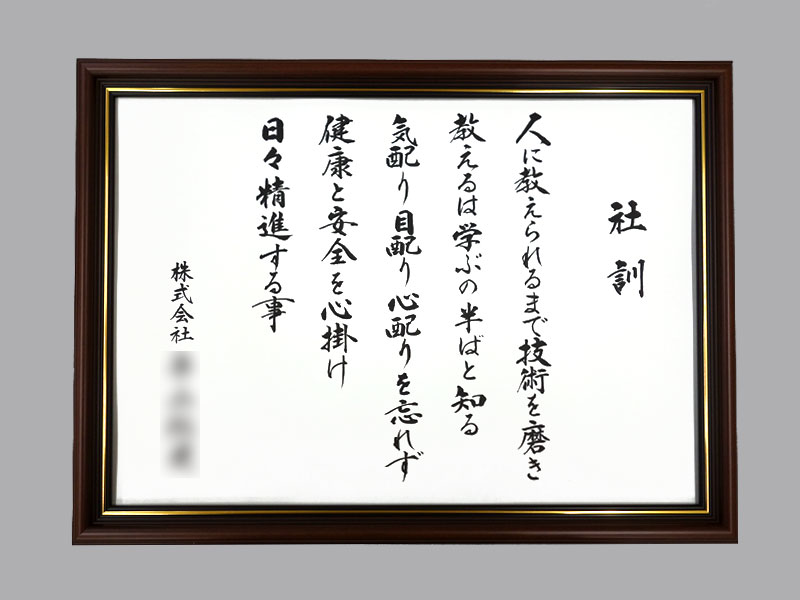 社訓
人に教えられるまで技術を磨き
教えるは学ぶの半ばと知る
気配り目配り心配りを忘れず
健康と安全を心掛け
日々精進する事
株式会社